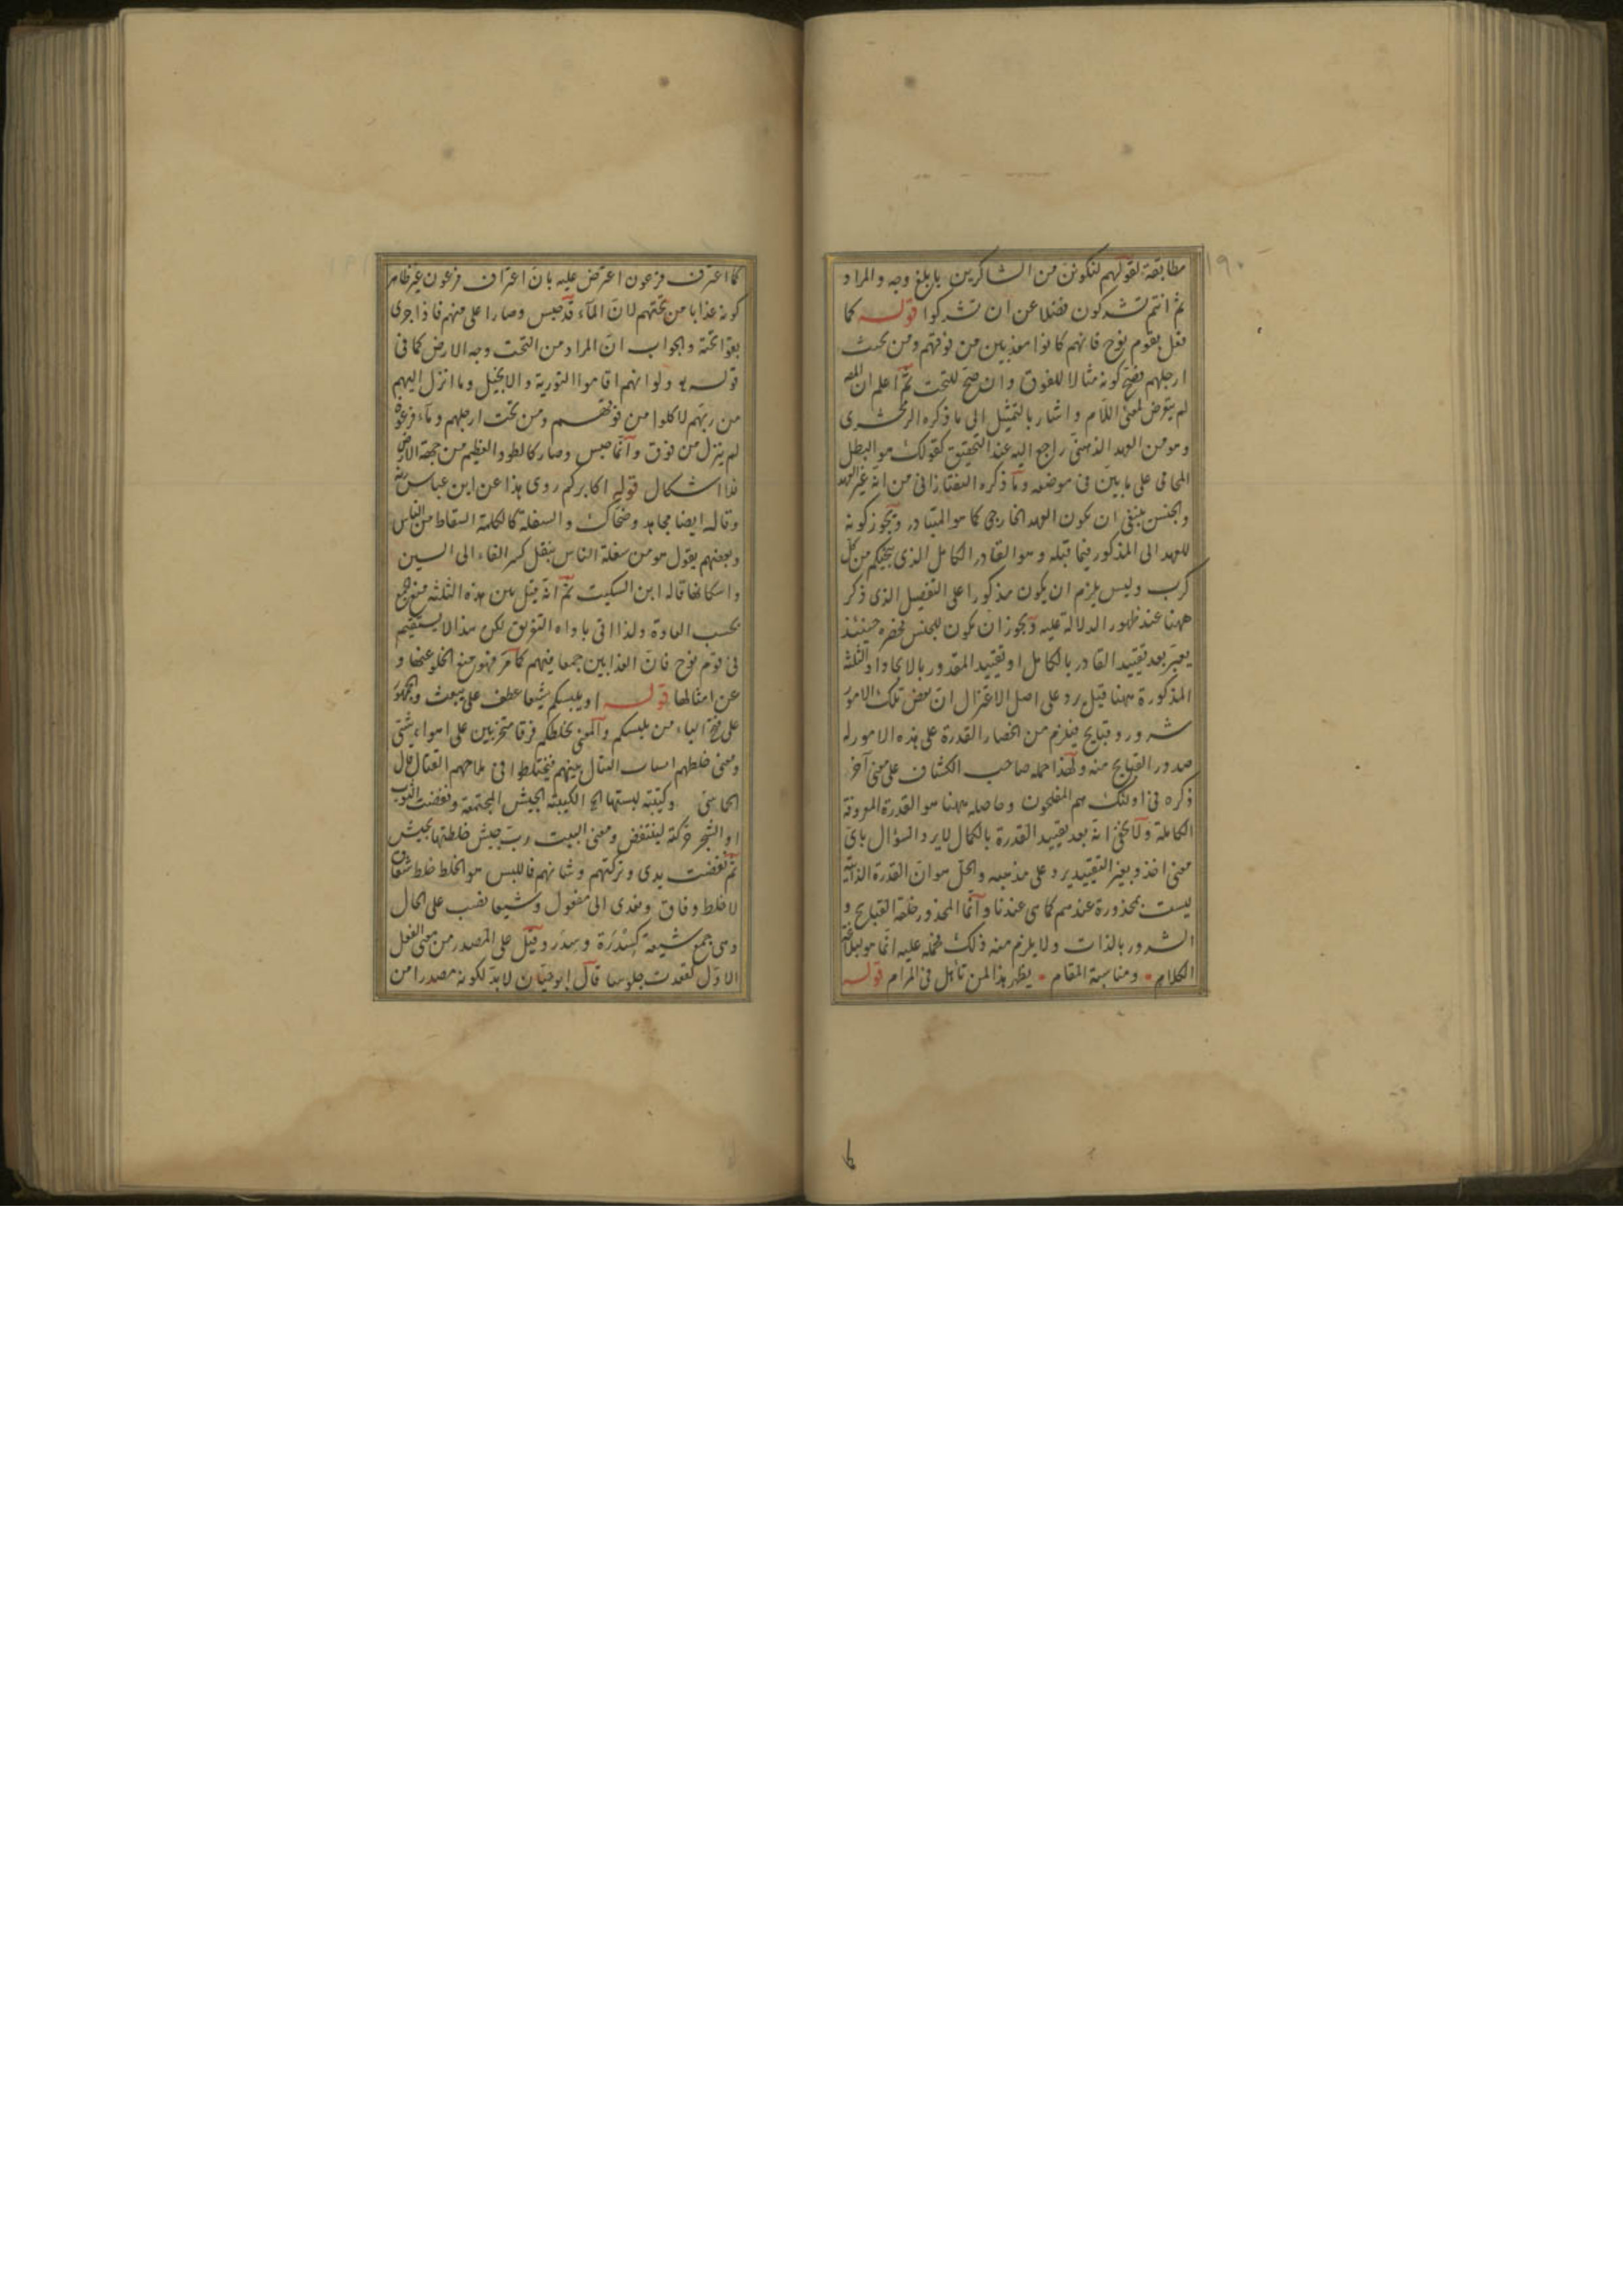 ١٩٠
مطابقة لقولهم لنكونن من الشاكرين بابلغ وجه والمراد
ثم انتم تشركون فضلا عن ان تشركوا قوله كما
فعل بقوم نوح فانهم كانوا معذبين من فوقهم ومن تحت
ارجلهم فصح كونه مثالا للفوق وان صح للتحت ثم اعلم ان المص
لم يتعرض لمعنى اللام واشار بالتمثيل الى ما ذكره الزمخشرى
وهو من العهد الذهنى راجع اليه عند التحقيق كقولك هو البطل
المحامى على ما بين فى موضعه وما ذكره التفتازانى من انه غير العهد
والجنس ينبغى ان يكون العهد الخارجى كما هو المتبادر ويجوز كونه
للعهد الى المذكور فيما قبله وهو القادر الكامل الذى ينجيكم من كل
كرب وليس يلزم ان يكون مذكورا على التفصيل الذى ذكر
ههنا عند ظهور الدلالة عليه ويجوز ان يكون للجنس فحصره حينئذ
يعتبر بعد تقييد القادر بالكامل او تقييد المقدور بالايجاد والثلثة
المذكورة ههنا قيل يرد على اصل الاعتزال ان بعض تلك الامور
شرور وقبايح فيلزم من انحصار القدرة على هذه الامور له
صدور القبايح منه ولهذا حمله صاحب الكشاف على معنى آخر
ذكره فى اولئك هم المفلحون وحاصله ههنا هو القدرة المعروفة
الكاملة ولا يخفى انه بعد تقييد القدرة بالكمال لا يرد السؤال باى
معنى اخذ وبغير التقييد يرد على مذهبه والحل هو ان القدرة الذاتية
ليست بمحذورة عندهم كما هى عندنا وانما المحذور خلقة القبايح و
الشرور بالذات ولا يلزم منه ذلك فحمله عليه انما هو لبلاغة
الكلام ومناسبة المقام يظهر هذا لمن تأمل فى المرام قوله
كما اغرق فرعون اعترض عليه بان اغراق فرعون غير ظاهر
كونه عذابا من تحتهم لان الماء قد حبس وصار اعلى منهم فاذا جرى
بقوا تحته والجواب ان المراد من التحت وجه الارض كما فى
قوله ولو انهم اقاموا التورية والانجيل وما انزل اليهم
من ربهم لاكلوا من فوقهم ومن تحت ارجلهم وماء فرعون
لم ينزل من فوق وانما حبس وصار كالطود العظيم من جهة الارض
فلا اشكال قوله اكابركم روى هذا عن ابن عباس
وقاله ايضا مجاهد وضحاك والسفلة كالكلمة السقاط من الناس
وبعضهم يقول هو من سفلة الناس بنقل كسر الفاء الى السين
واسكانها قاله ابن السكيت ثم انه قيل بين هذه الثلثة منع جمع
بحسب العادة ولذا اتى باداه التفريق لكن هذا لا يستقيم
فى قوم نوح فان العذابين جمعا فيهم كما مر فهو منع الخلو عنها و
عن امثالها قوله او يلبسكم شيعا عطف على يبعث والجمهور
على فتح الياء من يلبسكم والمعنى يخلطكم فرقا متحزبين على اهواء شتى
ومعنى خلطهم انشاب القتال بينهم فيختلطوا فى ملاحهم القتال قال
الحماسى وكتيبة لبستها الخ الكتيبة الجيش المجتمعة ونفضت الثوب
او الشجر حركته لينتفض ومعنى البيت رب جيش خلطتها بجيش
ثم نفضت يدى وتركتهم وشانهم فاللبس هو الخلط خلط شقاق
لا خلط وفاق ومعدى الى مفعول وشيعا نصب على الحال
وهى جمع شيعة كسدرة وسدر وقيل على المصدر من معنى الفعل
الاول كقعدت جلوسا قال ابو حيان لا بد لكونه مصدرا من